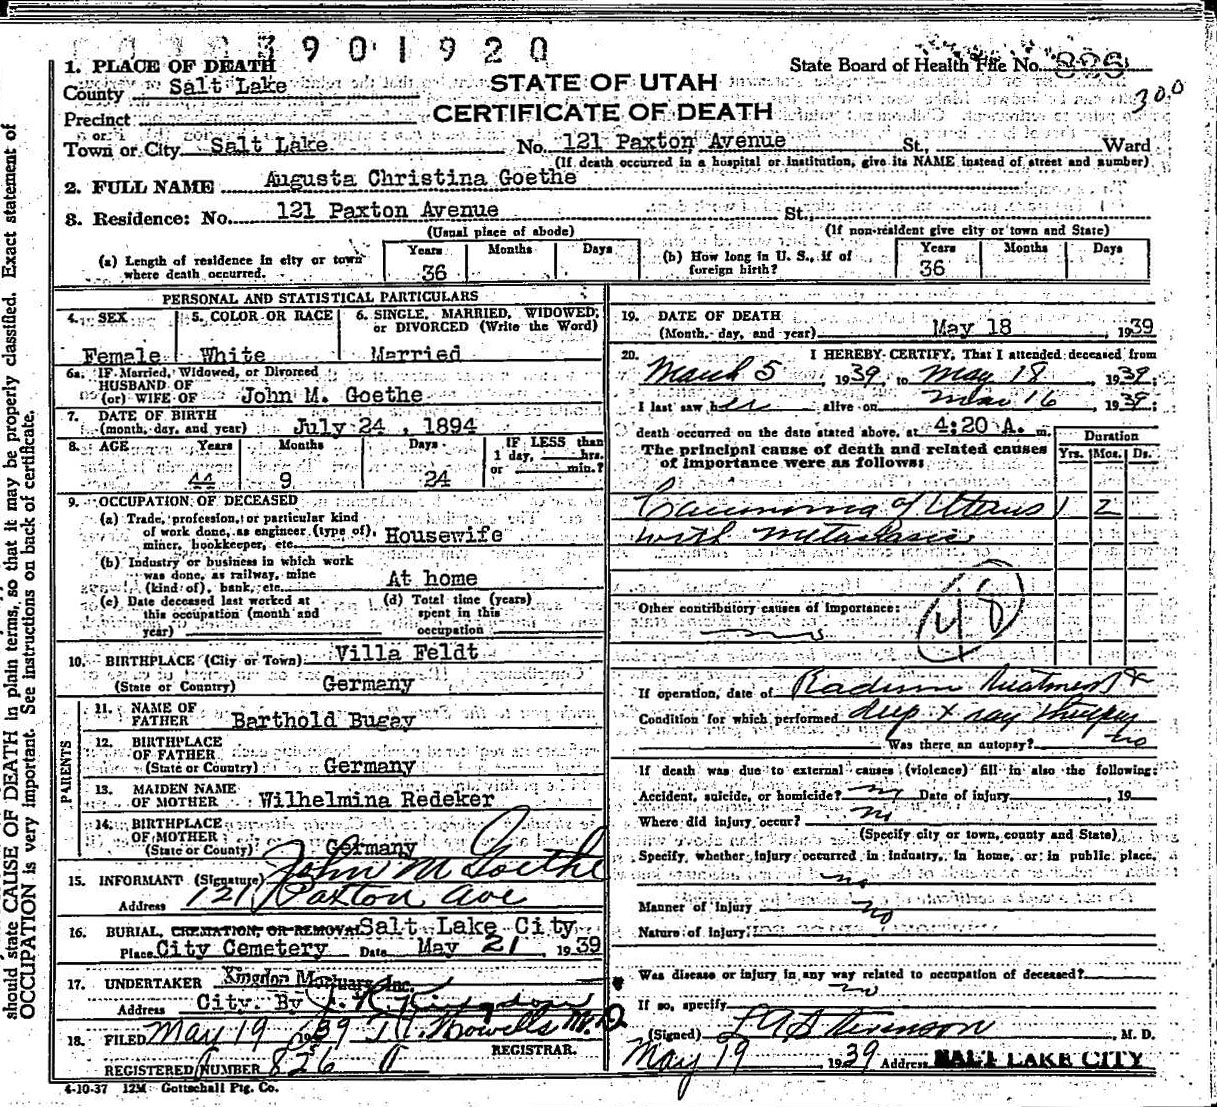 3 9 0 1 9 2 0
1. PLACE OF DEATH
State Board of Health File No. 826
County Salt Lake
STATE OF UTAH
300
Precinct
CERTIFICATE OF DEATH
or
Town or City Salt Lake No. 121 Paxton Avenue St., Ward
(If death occurred in a hospital or institution, give its NAME instead of street and number)
2. FULL NAME Augusta Christina Goethe
3. Residence: No. 121 Paxton Avenue St.,
(Usual place of abode) (If non-resident give city or town and State)
(a) Length of residence in city or town where death occurred. Years 36 Months Days
(b) How long in U. S., if of foreign birth? Years 36 Months Days
PERSONAL AND STATISTICAL PARTICULARS
4. SEX Female
5. COLOR OR RACE White
6. SINGLE, MARRIED, WIDOWED, or DIVORCED (Write the Word) Married
6a. IF Married, Widowed, or Divorced
HUSBAND OF
(or) WIFE OF John M. Goethe
7. DATE OF BIRTH
(month, day, and year) July 24, 1894
8. AGE Years 44 Months 9 Days 24 IF LESS than 1 day, hrs. or min.?
9. OCCUPATION OF DECEASED
(a) Trade, profession, or particular kind
of work done, as engineer (type of),
miner, bookkeeper, etc. Housewife
(b) Industry or business in which work
was done, as railway, mine
(kind of), bank, etc. At home
(c) Date deceased last worked at
this occupation (month and
year)
(d) Total time (years)
spent in this
occupation
10. BIRTHPLACE (City or Town) Villa Feldt
(State or Country) Germany
PARENTS
11. NAME OF
FATHER Barthold Bugay
12. BIRTHPLACE
OF FATHER
(State or Country) Germany
13. MAIDEN NAME
OF MOTHER Wilhelmina Redeker
14. BIRTHPLACE
OF MOTHER
(State or County) Germany
15. INFORMANT (Signature) John M Goethe
Address 121 Paxton Ave
16. BURIAL, CREMATION, OR REMOVAL Salt Lake City
Place City Cemetery Date May 21, 1939
17. UNDERTAKER Kingdon Mortuary Inc.
Address City. By Kingdon
18. FILED May 19 1939 T. J. Howells M.D
REGISTRAR.
REGISTERED NUMBER 826
4-10-37 12M Gottschall Ptg. Co.
19. DATE OF DEATH
(Month, day, and year) May 18, 1939
20. I HEREBY CERTIFY, That I attended deceased from
March 5, 1939, to May 18, 1939;
I last saw her alive on May 16, 1939;
death occurred on the date stated above, at 4:20 A. m.
The principal cause of death and related causes
of importance were as follows:
Duration
Yrs. Mos. Ds.
Carcinoma of Uterus 1 2
with metastasis
Other contributory causes of importance:
no
48
If operation, date of Radium treatment &
Condition for which performed deep x ray therapy
Was there an autopsy? no
If death was due to external causes (violence) fill in also the following:
Accident, suicide, or homicide? no Date of injury, 19
Where did injury occur? no
(Specify city or town, county and State)
Specify, whether injury occurred in industry, in home, or in public place.
no
Manner of injury no
Nature of injury
Was disease or injury in any way related to occupation of deceased?
no
If so, specify
(Signed) L A Stevenson, M. D.
May 19 1939 Address SALT LAKE CITY
should state CAUSE OF DEATH in plain terms, so that it may be properly classified. Exact statement of
OCCUPATION is very important. See instructions on back of certificate.